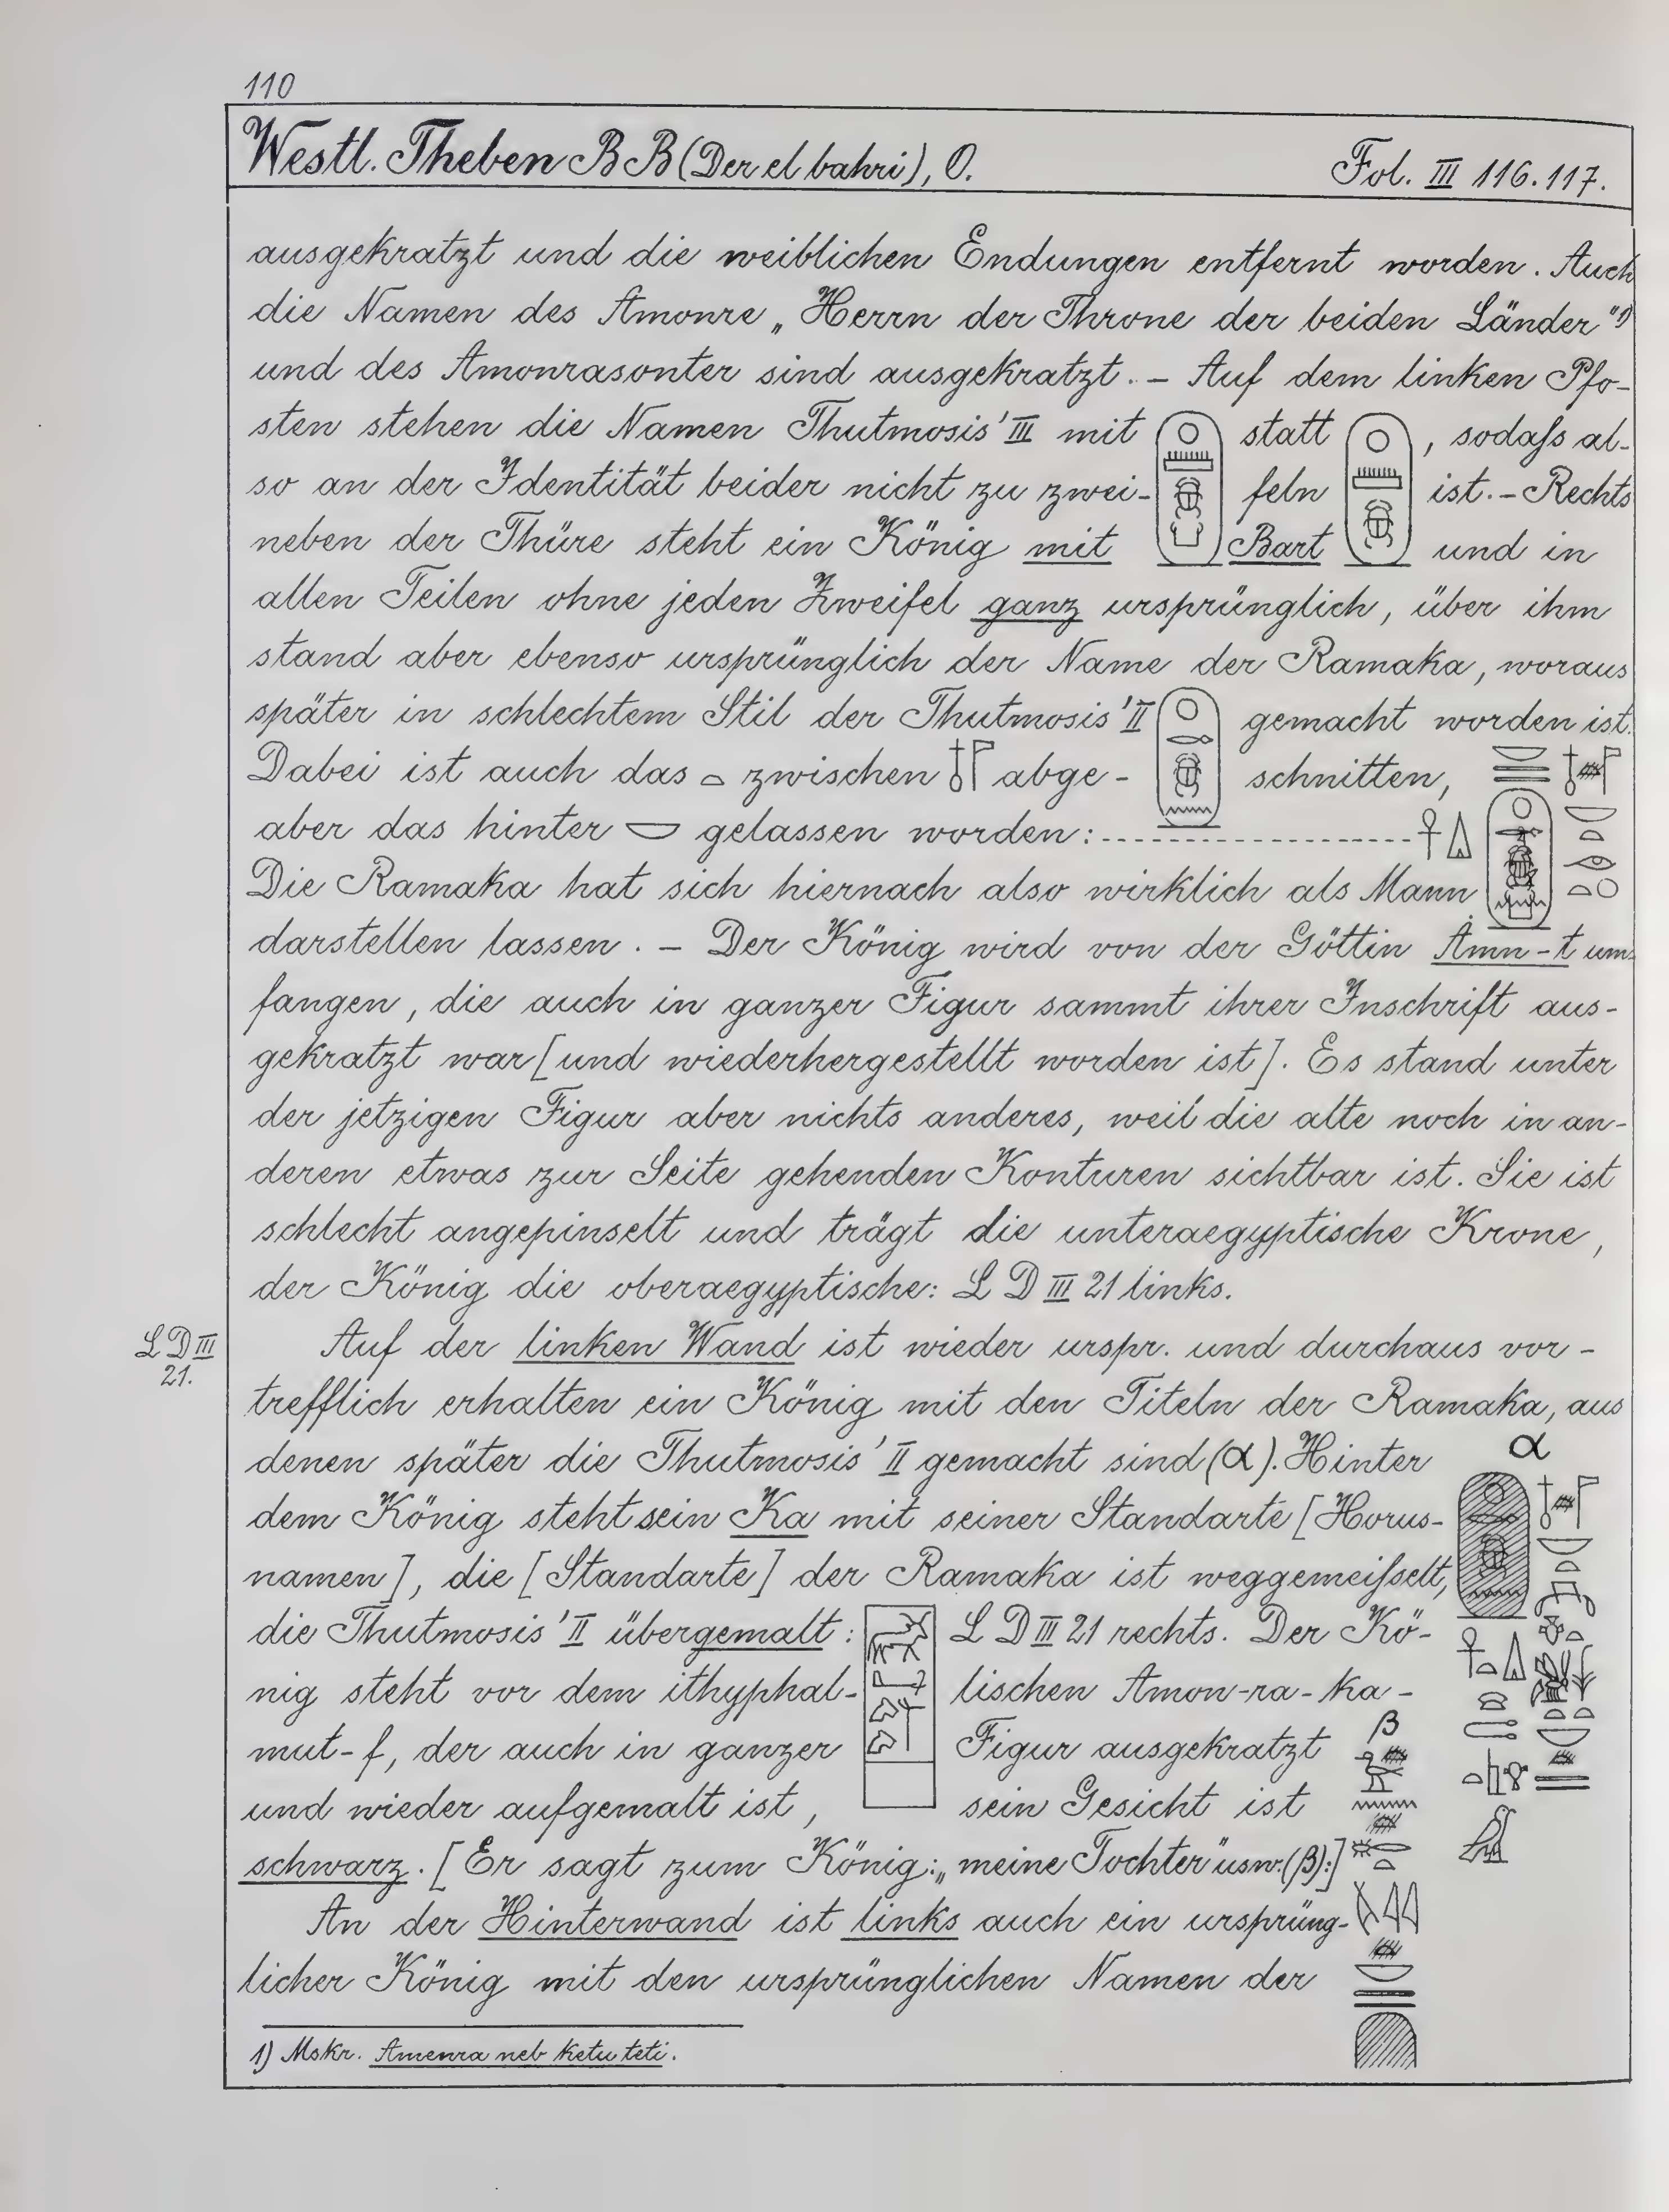 110
Westl. Theben BB (Der el bahri), O. Fol. III 116.117.
ausgekratzt und die weiblichen Endungen entfernt worden. Auch
die Namen des Amonre „Herrn der Throne der beiden Länder"1)
und des Amonrasonter sind ausgekratzt. – Auf dem linken Pfo-
sten stehen die Namen Thutmosis' III mit statt , sodaſs al-
so an der Identität beider nicht zu zwei- feln ist. – Rechts
neben der Thüre steht ein König mit Bart und in
allen Teilen ohne jeden Zweifel ganz ursprünglich, über ihm
stand aber ebenso ursprünglich der Name der Ramaka, woraus
später in schlechtem Stil der Thutmosis' II gemacht worden ist.
Dabei ist auch das zwischen abge- schnitten,
aber das hinter gelassen worden:
Die Ramaka hat sich hiernach also wirklich als Mann
darstellen lassen. – Der König wird von der Göttin Ȧmn-t um-
fangen, die auch in ganzer Figur sammt ihrer Inschrift aus-
gekratzt war [und wiederhergestellt worden ist]. Es stand unter
der jetzigen Figur aber nichts anderes, weil die alte noch in an-
deren etwas zur Seite gehenden Konturen sichtbar ist. Sie ist
schlecht angepinselt und trägt die unteraegyptische Krone,
der König die oberaegyptische: L D III 21 links.
L D III
21.
Auf der linken Wand ist wieder urspr. und durchaus vor-
trefflich erhalten ein König mit den Titeln der Ramaka, aus
denen später die Thutmosis' II gemacht sind (α). Hinter α
dem König steht sein Ka mit seiner Standarte [Horus-
namen], die [Standarte] der Ramaka ist weggemeiſselt,
die Thutmosis' II übergemalt: L D III 21 rechts. Der Kö-
nig steht vor dem ithyphal- lischen Amon-ra-ka-
mut-f, der auch in ganzer Figur ausgekratzt β
und wieder aufgemalt ist, sein Gesicht ist
schwarz. [Er sagt zum König: „meine Tochter" usw. (β):]
An der Hinterwand ist links auch ein ursprüng-
licher König mit den ursprünglichen Namen der
1) Mskr. Amenra neb ketu teti.